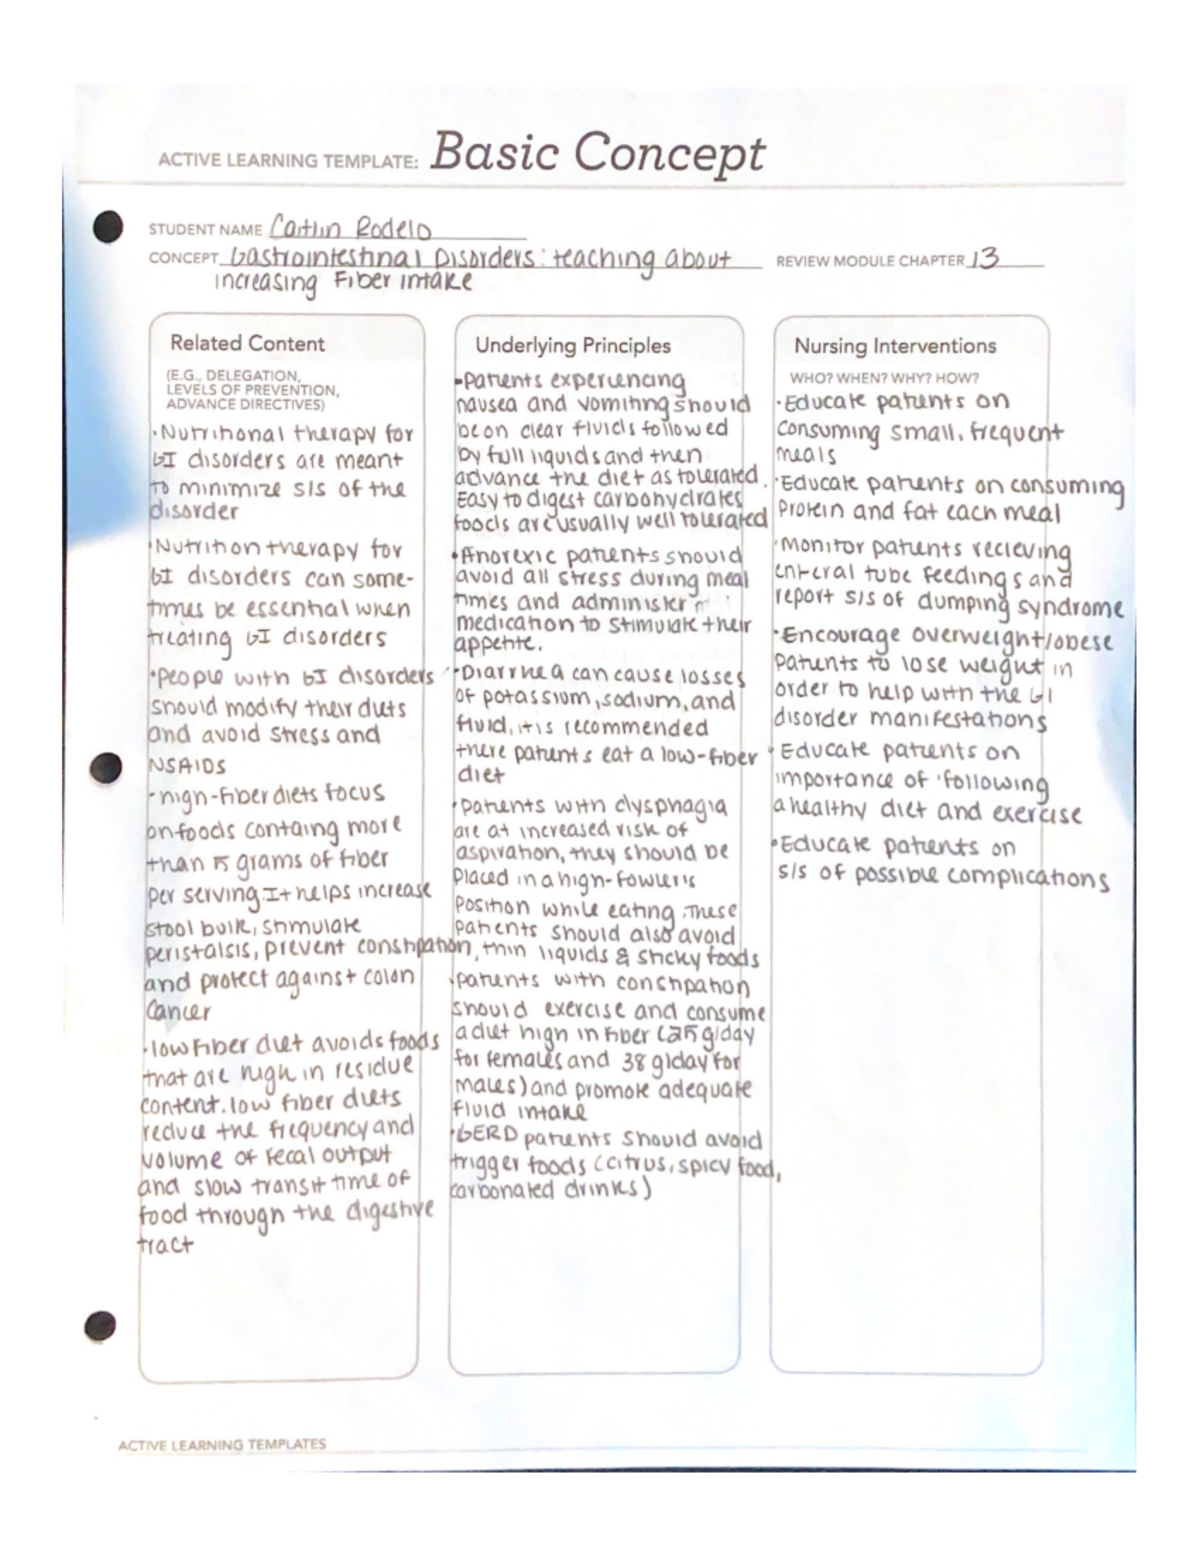 ACTIVE LEARNING TEMPLATE: Basic Concept
STUDENT NAME Caitlin Rodelo
CONCEPT Gastrointestinal Disorders: teaching about
increasing Fiber intake
REVIEW MODULE CHAPTER 13
Related Content
(E.G., DELEGATION,
LEVELS OF PREVENTION,
ADVANCE DIRECTIVES)
·Nutritional therapy for
GI disorders are meant
to minimize s/s of the
disorder
·Nutrition therapy for
GI disorders can some-
times be essential when
treating GI disorders
·People with GI disorders
should modify their diets
and avoid stress and
NSAIDS
·high-fiber diets focus
on foods containg more
than 15 grams of fiber
per serving. It helps increase
stool bulk, stimulate
peristalsis, prevent constipation,
and protect against colon
cancer
·low fiber diet avoids foods
that are high in residue
content. low fiber diets
reduce the frequency and
volume of fecal output
and slow transit time of
food through the digestive
tract
Underlying Principles
·Patients experiencing
nausea and vomiting should
be on clear fluids followed
by full liquids and then
advance the diet as tolerated.
Easy to digest carbohydrates
foods are usually well tolerated
·Anorexic patients should
avoid all stress during meal
times and administer
medication to stimulate their
appetite.
·Diarrhea can cause losses
of potassium, sodium, and
fluid, it is recommended
there patients eat a low-fiber
diet
·Patients with dysphagia
are at increased risk of
aspiration, they should be
placed in a high-fowler's
position while eating. These
patients should also avoid
thin liquids & sticky foods
·patients with constipation
should exercise and consume
a diet high in fiber (25 g/day
for females and 38 g/day for
males) and promote adequate
fluid intake
·GERD patients should avoid
trigger foods (citrus, spicy food,
carbonated drinks)
Nursing Interventions
WHO? WHEN? WHY? HOW?
·Educate patients on
consuming small, frequent
meals
·Educate patients on consuming
Protein and fat each meal
·Monitor patients recieving
enteral tube feedings and
report s/s of dumping syndrome
·Encourage overweight/obese
patients to lose weight in
order to help with the GI
disorder manifestations
·Educate patients on
importance of following
a healthy diet and exercise
·Educate patients on
s/s of possible complications
ACTIVE LEARNING TEMPLATES